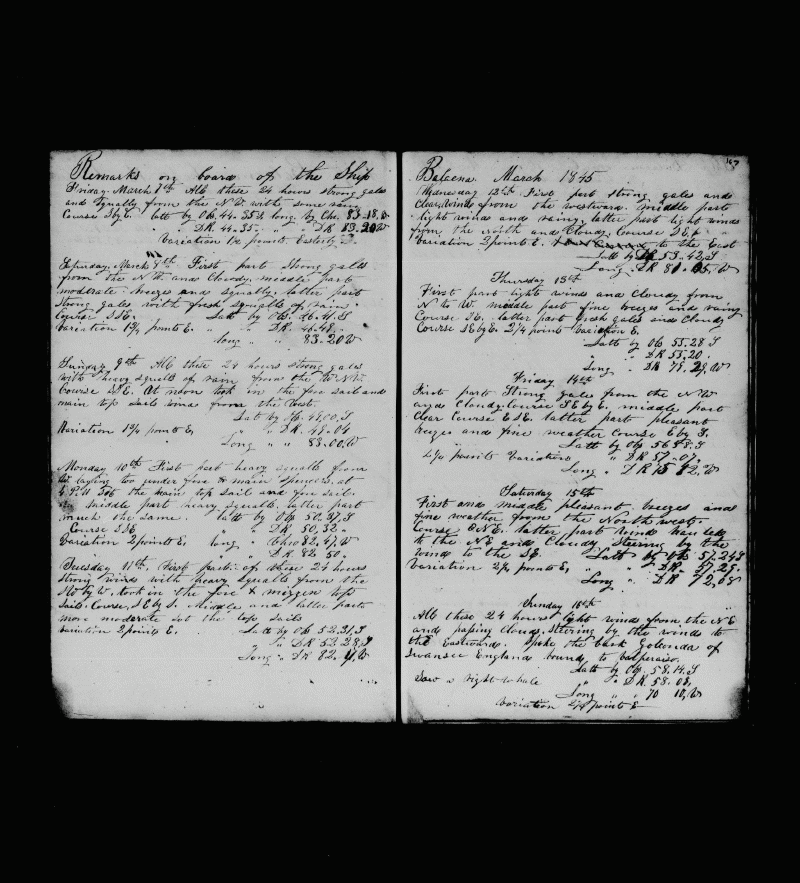 Remarks on board of the Ship
Friday March 7th All these 24 hours strong gales
and squally from the N.W. with some rain
Course by Latt by Obs. 44.35 S long by Chro. 83.18 W
" " D R. 44.35 " " D R 83.20 W
Variation points Easterly
Saturday March 8th First part Strong gales
from the N.W. and Cloudy, middle part
moderate breezes and squally, latter part
Strong gales with fresh squalls of rain
Course S S E. Latt by Obs. S
Variation 1 3/4 points E. " " D R. 46.48
Long " " 83.20 W
Sunday 9th All these 24 hours strong gales
with heavy squalls of rain from the W N W.
Course S S E. At noon took in the fore sail and
main top sail wind from the West.
Latt by Ob. 49.00, S
Variation 1 3/4 points E, " " D R. 48.
Long " " 83.00 W
Monday 10th First part heavy squalls from
laying too under fore & main spencers. at
4 P.M Set the main top sail and fore sail.
middle part heavy squalls. latter part
much the same. Latt by Obs 50.37, S
Course S S E " " D R 50,32
Variation 2 points E, long " Chro 82.47, W
" " D R 82 50
Tuesday 11th, First part of these 24 hours
strong winds with heavy squalls from the
by W, took in the fore & mizzen top
Sails. Course, S E by S. Middle and latter parts
more moderate set the top sails
Variation 2 points E. Latt by Ob 52.31, S
" " D R 52 28, S
Long " D R 82. W
167
Baleena March 1845
Wednesday 12th First part strong gales and
clear, winds from the westward. middle part
light winds and rainy, latter part light winds
from the North and Cloudy, Course S E,
Variation 2 points E. to the East
Latt by D R 53.42, S
Long " D R 81.05, W
Thursday 13th
First part light winds and Cloudy from
N to W. middle part fine breezes and rainy
Course S E. latter part fresh gales and Cloudy
Course S E by E. 2 1/4 point Variation E.
Latt by Ob 55.28 S
" " D R 55.20
Long " D R 79. W
Friday 14th
First part Strong gales from the N W
and Cloudy Course S E by E. middle part
Clear Course E S E. latter part pleasant
breezes and fine weather Course E by S.
Latt by Obs 56 58. S
points Variation " D R 57.07.
Long " D R 75 12, W
Saturday 15th
First and middle pleasant breezes and
fine weather from the North west.
Course E N E. latter part Wind hauled
to the N E and Cloudy Steering by the
wind to the S E. Latt by Obs 57,24 S
Variation 2 1/4 points E, " " D R. 57,29.
Long " D R 72,08
Sunday 16th
All these 24 hours light wind from the N E
and passing clouds, Steering by the winds to
the Eastward. Spoke the bark Golconda of
Swansea England bound to Valparaiso.
Latt by Ob. 58.14. S
Saw a right whale " " D R. 58.08,
Long " " 70 10, W
Variation 2 1/4 points E